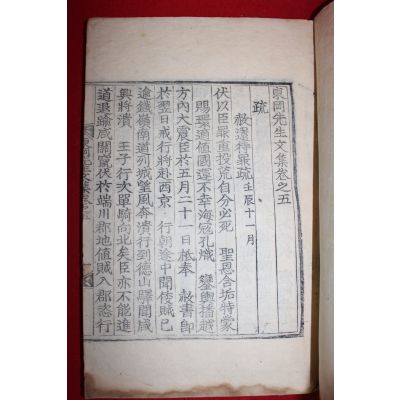 東岡先生文集卷之五
疏
赦還待罪疏 壬辰十一月
伏以臣罪重投荒自分必死 聖恩含垢特蒙
賜環適値國運不幸海寇孔熾 鑾輿播越
方內大震臣於五月二十一日祗奉 赦書卽
於翌日戒行將赴西京 行朝途中聞倭賊已
逾鐵嶺南道列城望風奔潰行到德山驛聞咸
興將潰 王子行次單騎向北矣臣亦不能進
道退踰咸關竄伏於端川郡地値賊入郡恣行